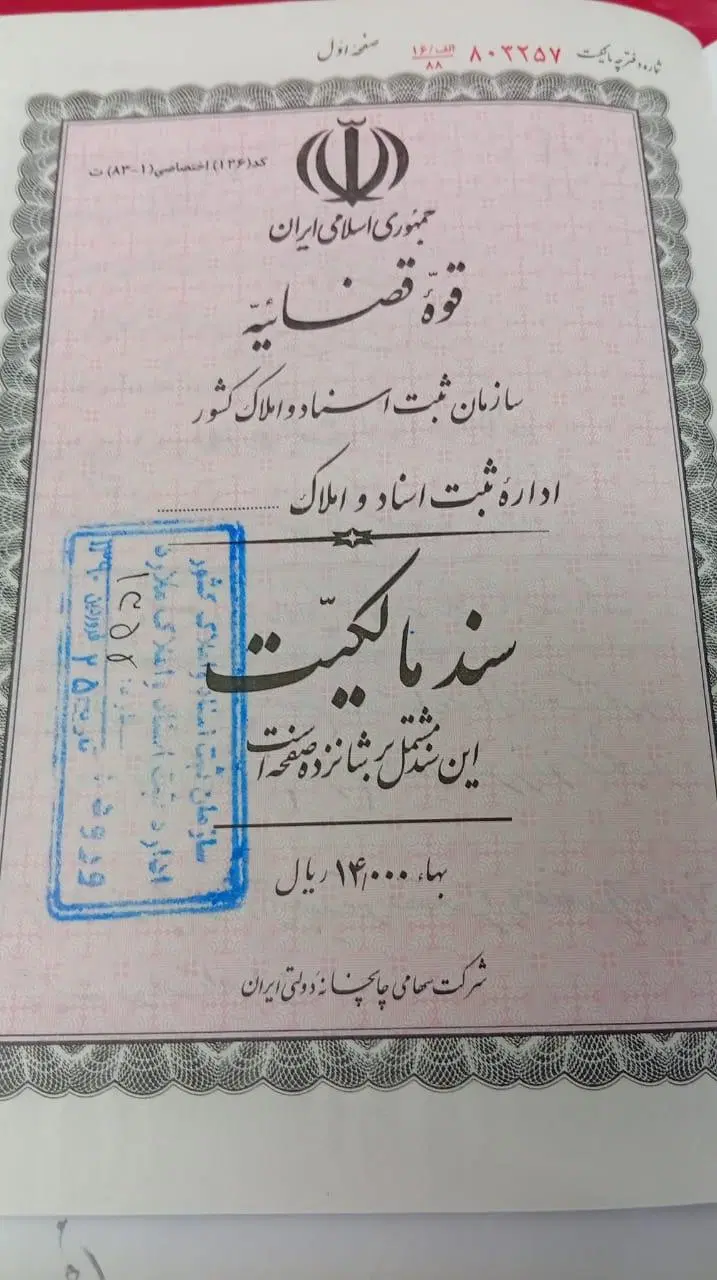 شماره دفترچه مالکیت ۸۰۳۲۵۷ الف/۱۶ ۸۸ صفحهٔ اول
کد(۱۲۶) اختصاصی(۱-۸۳) ت
جمهوری اسلامی ایران
قوهٔ قضائیّه
سازمان ثبت اسناد و املاک کشور
ادارهٔ ثبت اسناد و املاک ....................
سند مالکیّت
این سند مشتمل بر شانزده صفحه است
بهاء ۱۴/۰۰۰ ریال
شرکت سهامی چاپخانهٔ دولتی ایران
سازمان ثبت اسناد و املاک کشور
اداره ثبت اسناد و املاک ملارد
تاریخ ۲۵ فروردین ۱۳۹۰